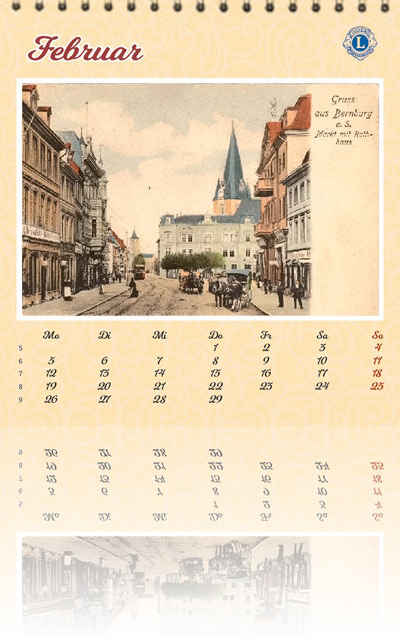 Februar
L
Gruss
aus Bernburg
a. S.
Markt mit Rath-
haus
Mo Di Mi Do Fr Sa So
5 1 2 3 4
6 5 6 7 8 9 10 11
7 12 13 14 15 16 17 18
8 19 20 21 22 23 24 25
9 26 27 28 29